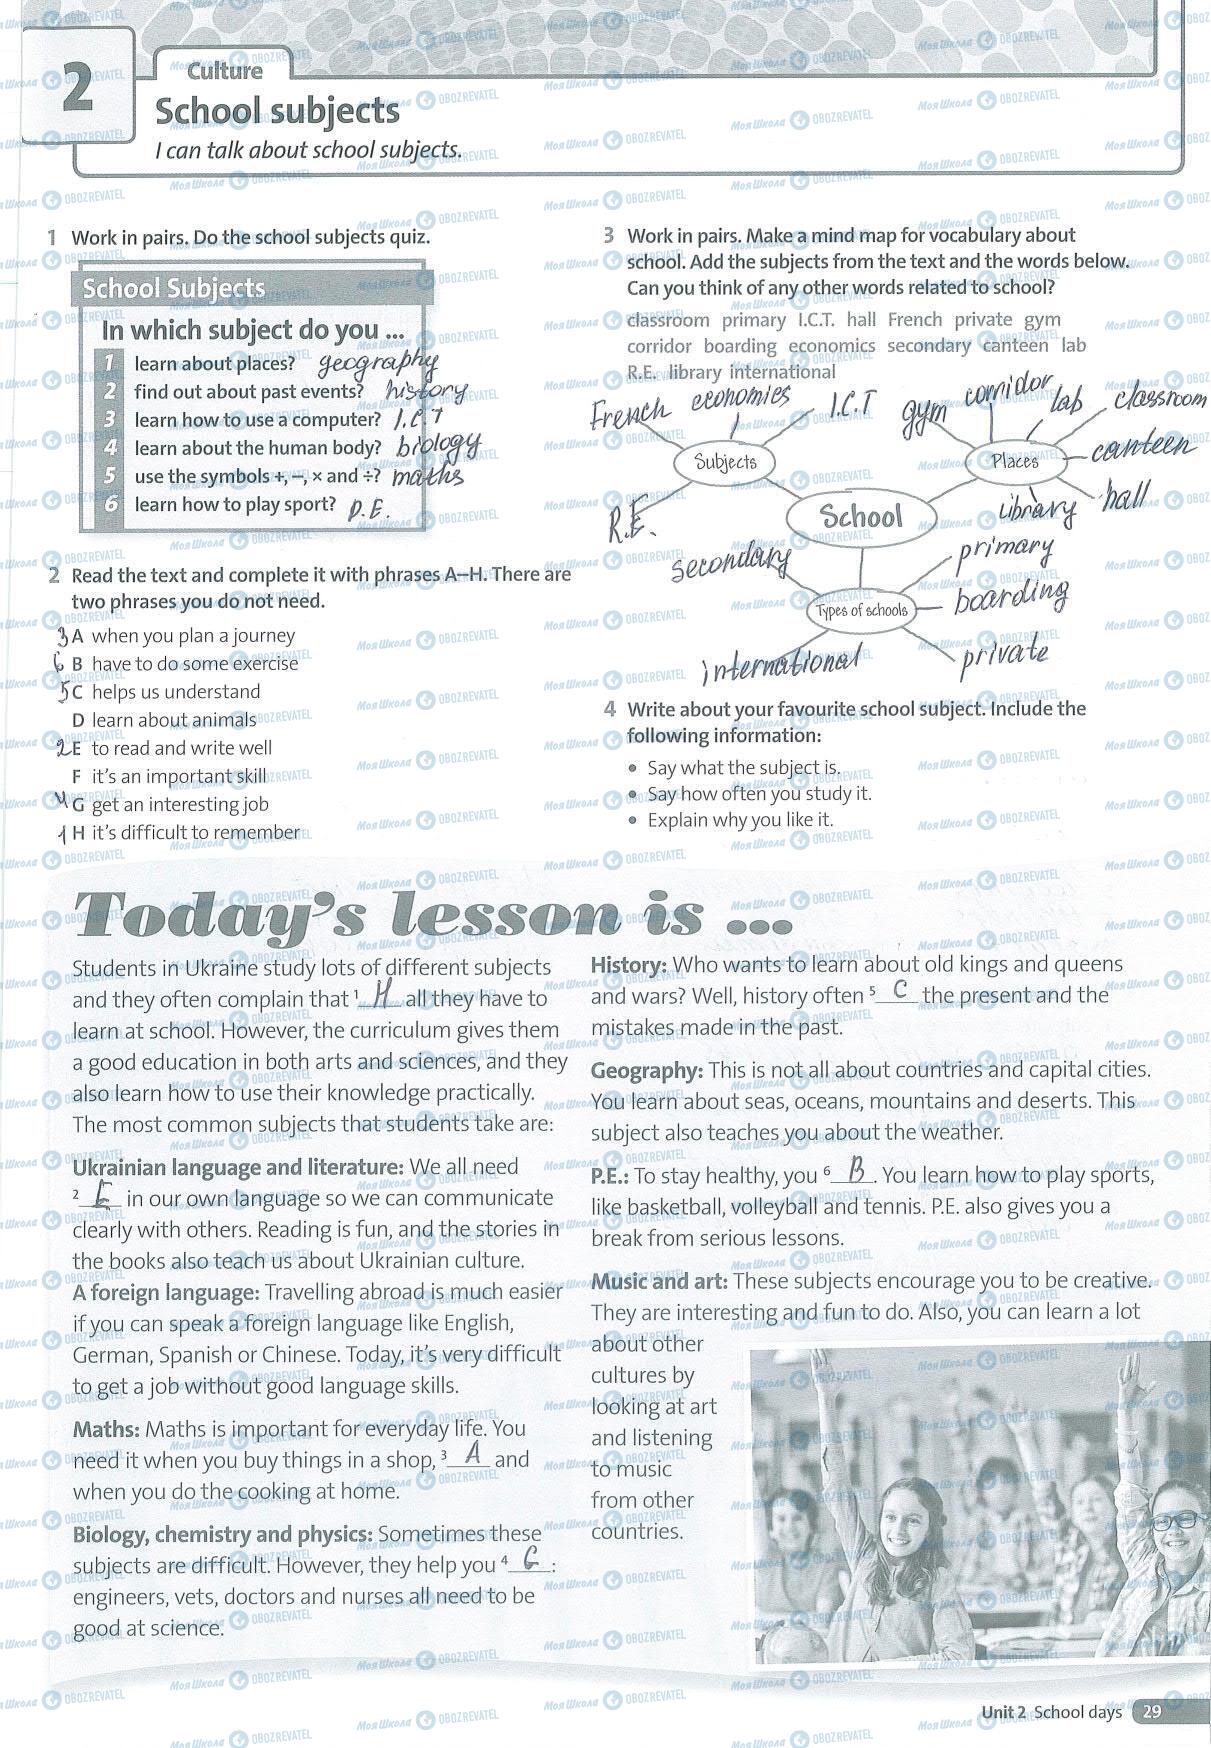 2
Culture
School subjects
I can talk about school subjects.
1 Work in pairs. Do the school subjects quiz.
School Subjects
In which subject do you ...
1 learn about places? geography
2 find out about past events? history
3 learn how to use a computer? I.C.T
4 learn about the human body? biology
5 use the symbols +, –, × and ÷? maths
6 learn how to play sport? P.E.
2 Read the text and complete it with phrases A–H. There are
two phrases you do not need.
3 A when you plan a journey
6 B have to do some exercise
5 C helps us understand
D learn about animals
2 E to read and write well
F it's an important skill
4 G get an interesting job
1 H it's difficult to remember
3 Work in pairs. Make a mind map for vocabulary about
school. Add the subjects from the text and the words below.
Can you think of any other words related to school?
classroom primary I.C.T. hall French private gym
corridor boarding economics secondary canteen lab
R.E. library international
French economies I.C.T gym corridor lab classroom
Subjects Places canteen
R.E. School library hall
secondary primary
Types of schools boarding
international private
4 Write about your favourite school subject. Include the
following information:
• Say what the subject is.
• Say how often you study it.
• Explain why you like it.
Today's lesson is ...
Students in Ukraine study lots of different subjects
and they often complain that 1 H all they have to
learn at school. However, the curriculum gives them
a good education in both arts and sciences, and they
also learn how to use their knowledge practically.
The most common subjects that students take are:
Ukrainian language and literature: We all need
2 E in our own language so we can communicate
clearly with others. Reading is fun, and the stories in
the books also teach us about Ukrainian culture.
A foreign language: Travelling abroad is much easier
if you can speak a foreign language like English,
German, Spanish or Chinese. Today, it's very difficult
to get a job without good language skills.
Maths: Maths is important for everyday life. You
need it when you buy things in a shop, 3 A and
when you do the cooking at home.
Biology, chemistry and physics: Sometimes these
subjects are difficult. However, they help you 4 G :
engineers, vets, doctors and nurses all need to be
good at science.
History: Who wants to learn about old kings and queens
and wars? Well, history often 5 C the present and the
mistakes made in the past.
Geography: This is not all about countries and capital cities.
You learn about seas, oceans, mountains and deserts. This
subject also teaches you about the weather.
P.E.: To stay healthy, you 6 B . You learn how to play sports,
like basketball, volleyball and tennis. P.E. also gives you a
break from serious lessons.
Music and art: These subjects encourage you to be creative.
They are interesting and fun to do. Also, you can learn a lot
about other
cultures by
looking at art
and listening
to music
from other
countries.
Unit 2 School days 29
МояШкола OBOZREVATEL